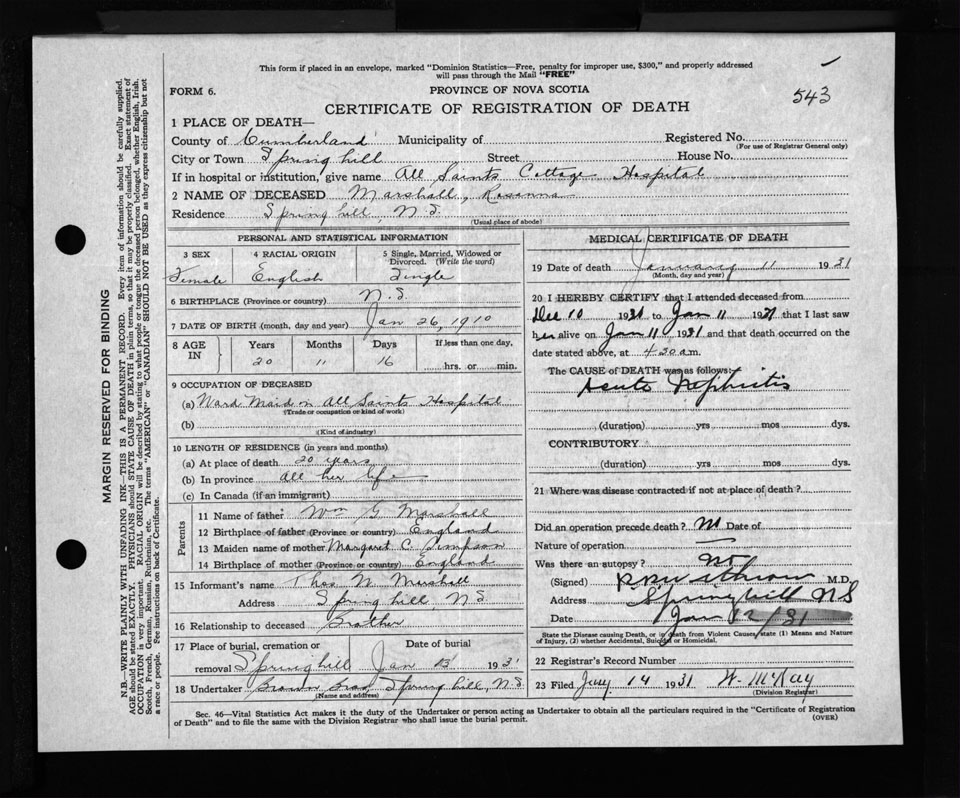 This form if placed in an envelope, marked "Dominion Statistics—Free, penalty for improper use, $300," and properly addressed
will pass through the Mail "FREE"
FORM 6.
PROVINCE OF NOVA SCOTIA
543
CERTIFICATE OF REGISTRATION OF DEATH
1 PLACE OF DEATH—
County of Cumberland Municipality of Registered No.
(For use of Registrar General only)
City or Town Springhill Street House No.
If in hospital or institution, give name All Saints Cottage Hospital
2 NAME OF DECEASED Marshall, Rosanna
Residence Springhill, N.S.
(Usual place of abode)
PERSONAL AND STATISTICAL INFORMATION
3 SEX 4 RACIAL ORIGIN 5 Single, Married, Widowed or Divorced. (Write the word)
Female English Single
6 BIRTHPLACE (Province or country) N.S.
7 DATE OF BIRTH (month, day and year) Jan 26, 1910
8 AGE IN Years Months Days If less than one day,
20 11 16 hrs. or min.
9 OCCUPATION OF DECEASED
(a) Ward Maid in All Saints Hospital
(Trade or occupation or kind of work)
(b)
(Kind of industry)
10 LENGTH OF RESIDENCE (in years and months)
(a) At place of death 20 years
(b) In province All her life
(c) In Canada (if an immigrant)
Parents
11 Name of father Wm G Marshall
12 Birthplace of father (Province or country) England
13 Maiden name of mother Margaret C. Simpson
14 Birthplace of mother (Province or country) England
15 Informant's name Thos W Marshall
Address Springhill, N.S.
16 Relationship to deceased Brother
17 Place of burial, cremation or Date of burial
removal Springhill Jan 13 1931
18 Undertaker Brown Bros, Springhill, N.S.
(Name and address)
MEDICAL CERTIFICATE OF DEATH
19 Date of death January 11 1931
(Month, day and year)
20 I HEREBY CERTIFY that I attended deceased from
Dec 10 1930 to Jan 11 1931 that I last saw
her alive on Jan 11 1931 and that death occurred on
date stated above, at 4.30 a.m.
The CAUSE of DEATH was as follows:
Acute Nephritis
(duration) yrs mos dys.
CONTRIBUTORY
(duration) yrs mos dys.
21 Where was disease contracted if not at place of death?
Did an operation precede death? No Date of
Nature of operation
Was there an autopsy? No
(Signed) M.D.
Address Springhill NS
Date Jan 12/31
State the Disease causing Death, or in death from Violent Causes state (1) Means and Nature
of Injury, (2) whether Accidental, Suicidal or Homicidal.
22 Registrar's Record Number
23 Filed Jany 14 1931 W. McKay
(Division Registrar)
Sec. 46—Vital Statistics Act makes it the duty of the Undertaker or person acting as Undertaker to obtain all the particulars required in the "Certificate of Registration
of Death" and to file the same with the Division Registrar who shall issue the burial permit.
(OVER)
MARGIN RESERVED FOR BINDING
N.B.—WRITE PLAINLY WITH UNFADING INK—THIS IS A PERMANENT RECORD. Every item of information should be carefully supplied.
AGE should be stated EXACTLY. PHYSICIANS should STATE CAUSE OF DEATH in plain terms, so that it may be properly classified. Exact statement of
OCCUPATION is very important. RACIAL ORIGIN will be described by stating to what people or tongue the deceased person belonged, whether English, Irish,
Scotch, French, German, Russian, Ruthenian, etc. The terms "AMERICAN" or "CANADIAN" SHOULD NOT BE USED as they express citizenship but not
a race or people. See instructions on back of Certificate.